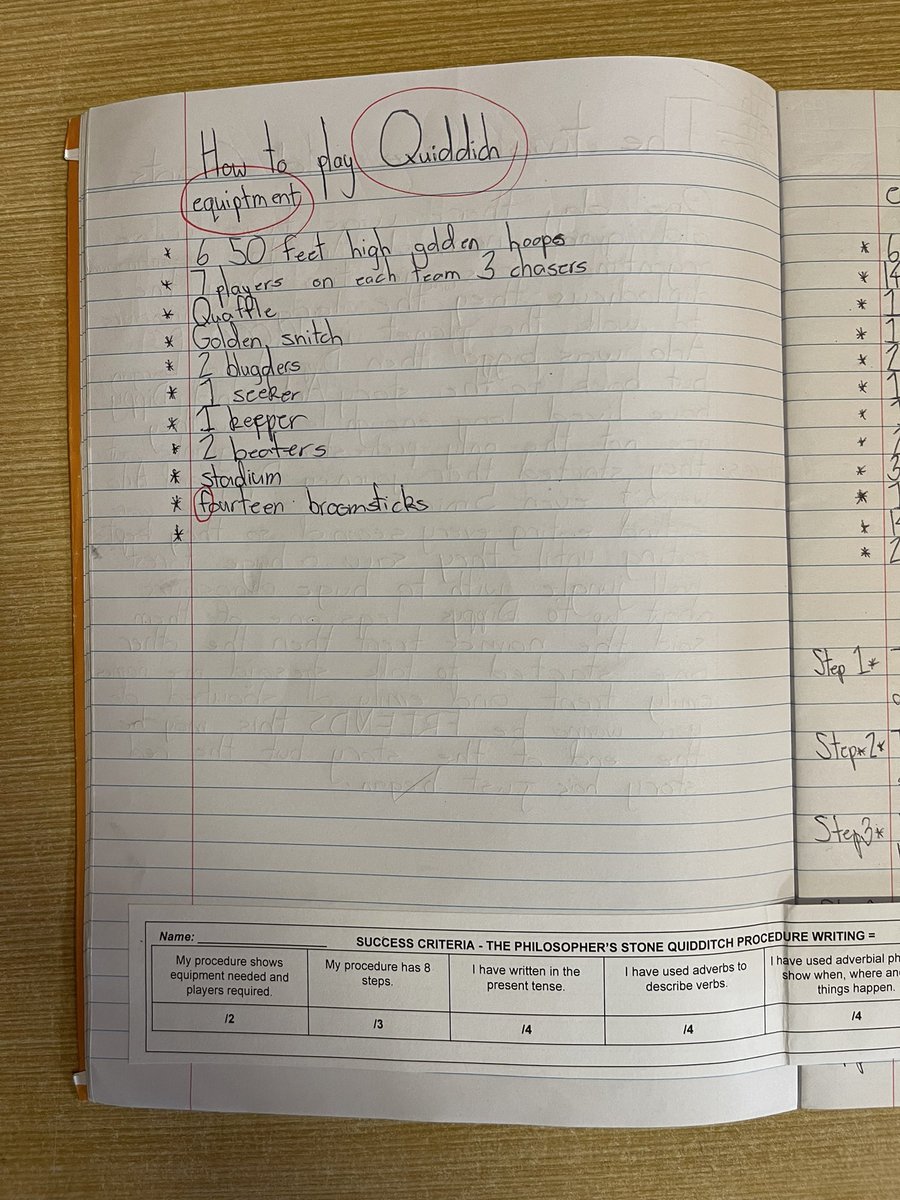 How to play Quiddich
equiptment
* 6 50 feet high golden hoops
* 7 players on each team 3 chasers
* Quaffle
* Golden snitch
* 2 blugders
* 1 seeker
* 1 keeper
* 2 beaters
* stadium
* fourteen broomsticks
*
* 6
* 14
* 1
* 1
* 2
* 1
*
*
* 3
*
* 14
* 2
Step 1*
Step*2*
Step3*
Name:
SUCCESS CRITERIA - THE PHILOSOPHER'S STONE QUIDDITCH PROCEDURE WRITING =
My procedure shows equipment needed and players required.
My procedure has 8 steps.
I have written in the present tense.
I have used adverbs to describe verbs.
I have used adverbial ph
show when, where an
things happen.
/2
/3
/4
/4
/4